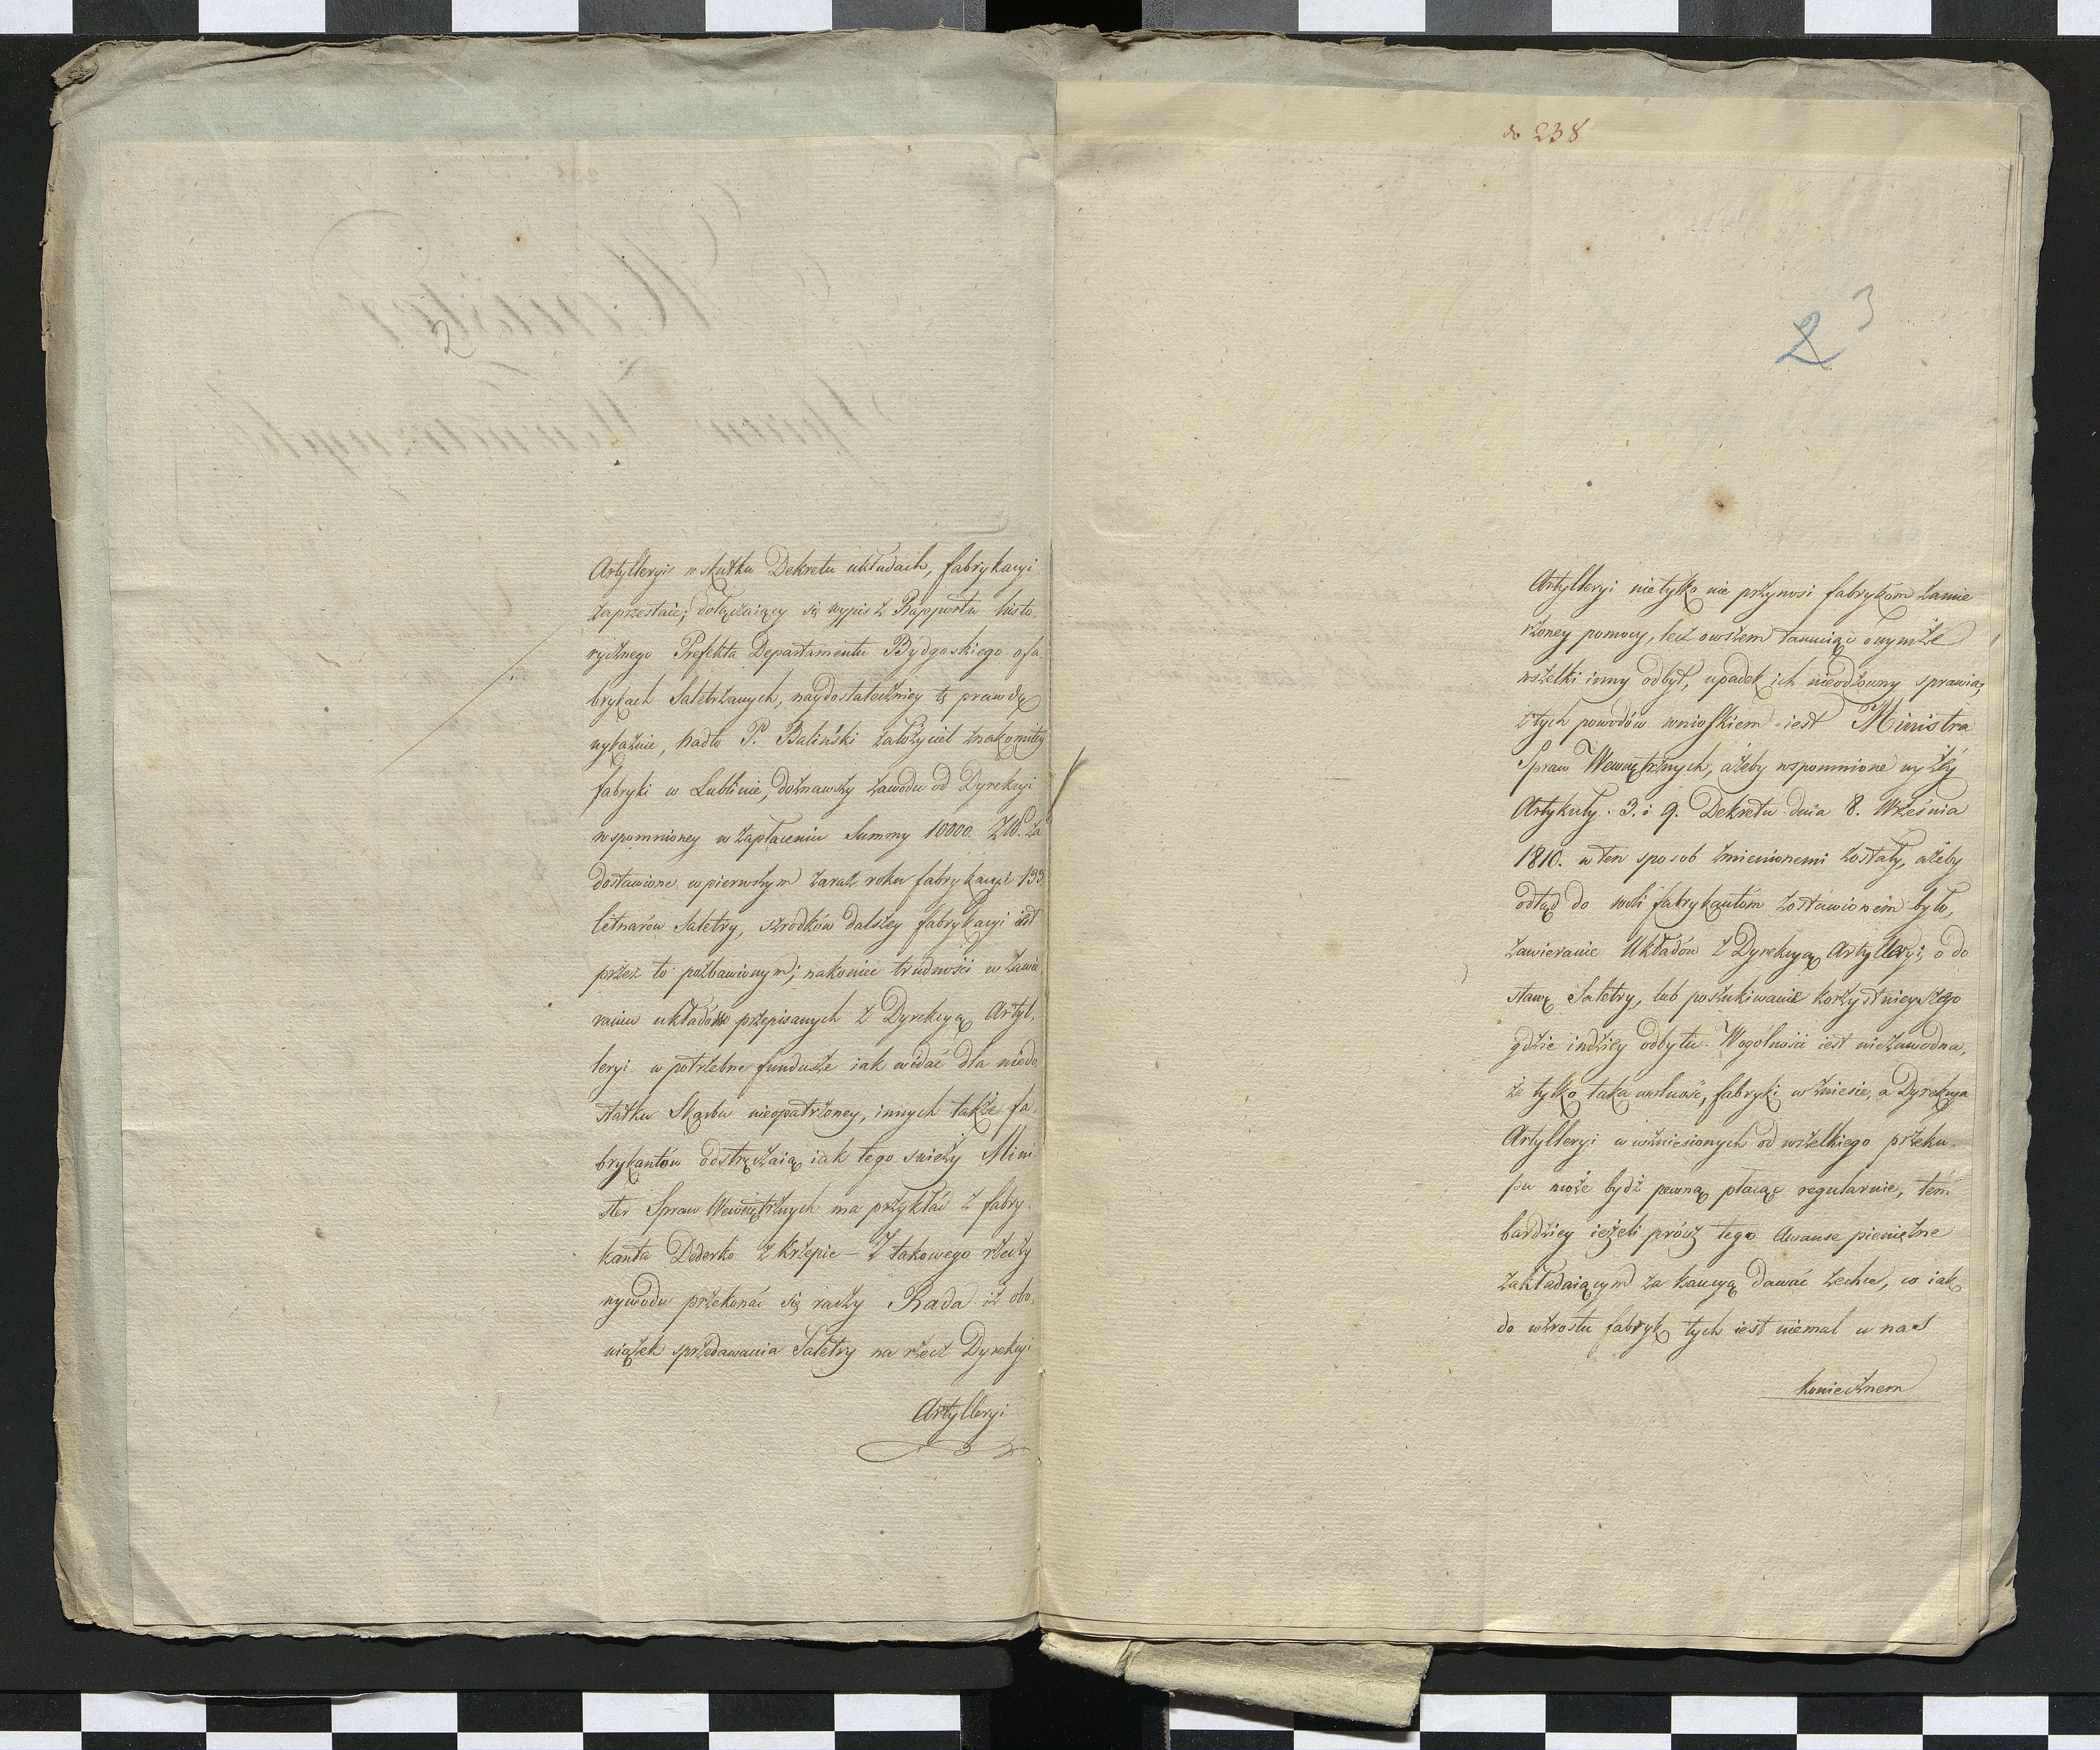 Artylleryi w skutku Dekretu układach, fabrykacyi
zaprzestaie; dołączaiący się wypis z Rapportu histo
rycznego Prefekta Departamentu Bydgoskiego o fa
brykach Saletrzanych, naydostateczniey tę prawdę
wykaźnie, nadto P. Baliński założyciel znakomitey
fabryki w Lublinie, doznawszy zawodu od Dyrekcyi
wspomnioney w zapłaceniu Summy 10000. Zł. za
dostawione w pierwszym zaraz roku fabrykacyi 133
Cetnarów Saletry, szrodków dalszey fabrykacyi iest
przez to pozbawionym; nakoniec trudności w zawie
raniu układów przepisanych z Dyrekcyą Artyl,
leryi w potrzebne fundusze iak widać dla niedo
statku Skarbu nieopatrzoney, innych także fa,
brykantów odstręczaią iak tego swieży Mini
ster Spraw Wewnętrznych ma przykład z fabry,
kanta Dederko z Krzepic – Z takowego rzeczy
wywodu przekonać się raczy Rada iż obo,
wiązek sprzedawania Saletry na rzecz Dyrekcyi
Artylleryi
do 238
2 3
Artylleryi nie tylko nie przynosi fabrykom zamie
rzoney pomocy, lecz owszem tamuiąc onymże
wszelki inny odbyt, upadek ich nieodzowny sprawia,
z tych powodów wnioskiem iest Ministra
Spraw Wewnętrznych, ażeby wspomnione wyżey
Artykuły 3. i 9. Dekretu dnia 8. Września
1810. w ten sposob zmienionemi zostały, ażeby
odtąd do woli fabrykantom zostawionem było,
zawieranie Układów z Dyrekcyą Artylleryi, o do
stawę Saletry, lub poszukiwanie korzystnieyszego
gdzie indziey odbytu. Wogólności iest niezawodna,
że tylko taka wolność, fabryki wzniesie, a Dyrekcya
Artylleryi w wzniesionych od wszelkiego przeku,
pu może bydź pewną płacąc regularnie, tem
bardziey ieżeli prócz tego Awanse pieniężne
zakładaiącym za kaucyą dawać zechce, co iak
do wzrostu fabryk tych iest niemal u nas
koniecznem